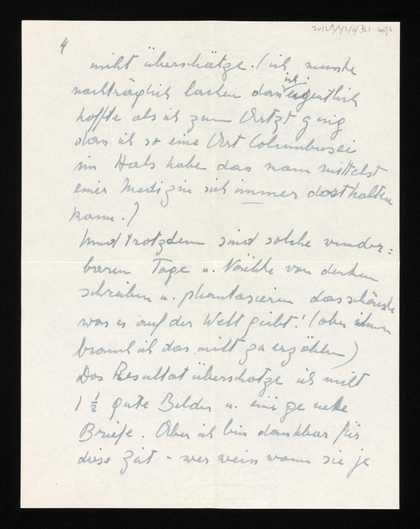 4
nicht überschätze. (ich musste
nachträglich lachen dass ich eigentlich
hoffte als ich zum Artzt ging
dass ich so eine Art Columbusei
im Hals habe das man mittelst
einer Medizin sich immer dort halten
kann.)
Und trotzdem sind solche wunder=
baren Tage u. Nächte von denken
schreiben u. phantasieren das schönste
was es auf der Welt giebt! (aber ihnen
brauch ich das nicht zu erzählen)
Das Resultat überschätze ich nicht
1 ½ gute Bilder u. einige nette
Briefe. Aber ich bin dankbar für
diese Zeit - wer weiss wann sie je